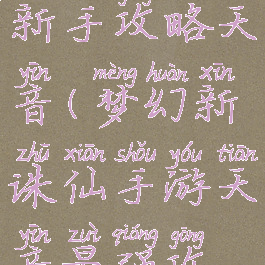 新手攻略天
yīn mèng huàn xīn
音(梦幻新
zhū xiān shǒu yóu tiān
诛仙手游天
yīn zuì qiáng gōng
音最强攻